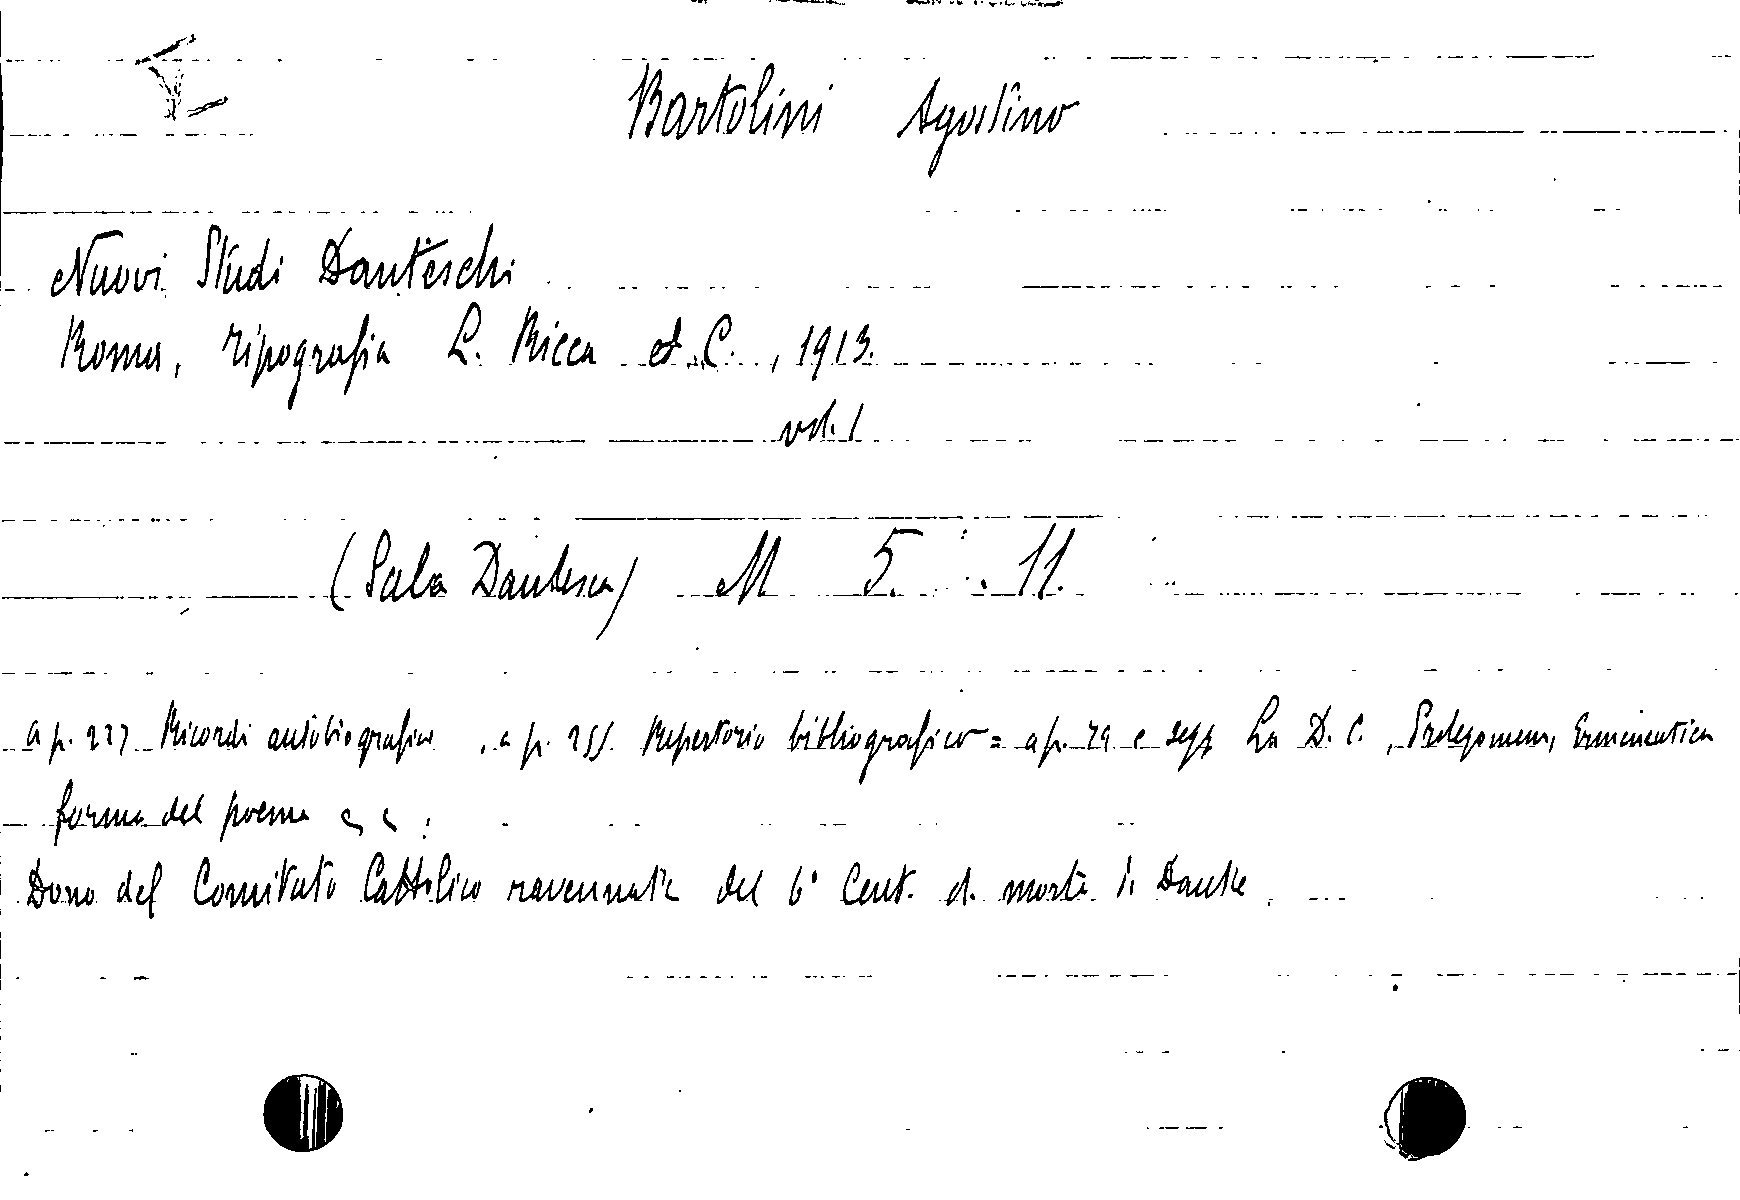 Bartolini Agostino
Nuovi Studi Danteschi
Roma, tipografia L. Ricca et C., 1913.
vol. 1
(Sala Dantesca) M 5. 11.
a p. 227 Ricordi autobiografici, a p. 255. Repertorio bibliografico = a p. 79 e segg La D. C., Prolegomeni, Ermeneutica
forma del poema
Dono del Comitato Cattolico ravennate del 6° Cent. d. morte di Dante